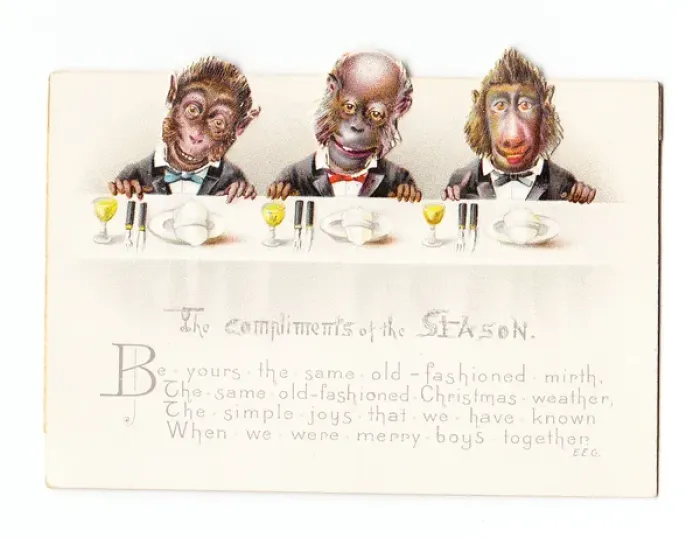 The compliments of the SEASON.
Be · yours · the · same · old-fashioned · mirth,
The · same · old-fashioned · Christmas · weather,
The · simple · joys · that · we · have · known
When · we · were · merry · boys · together.
E.E.G.